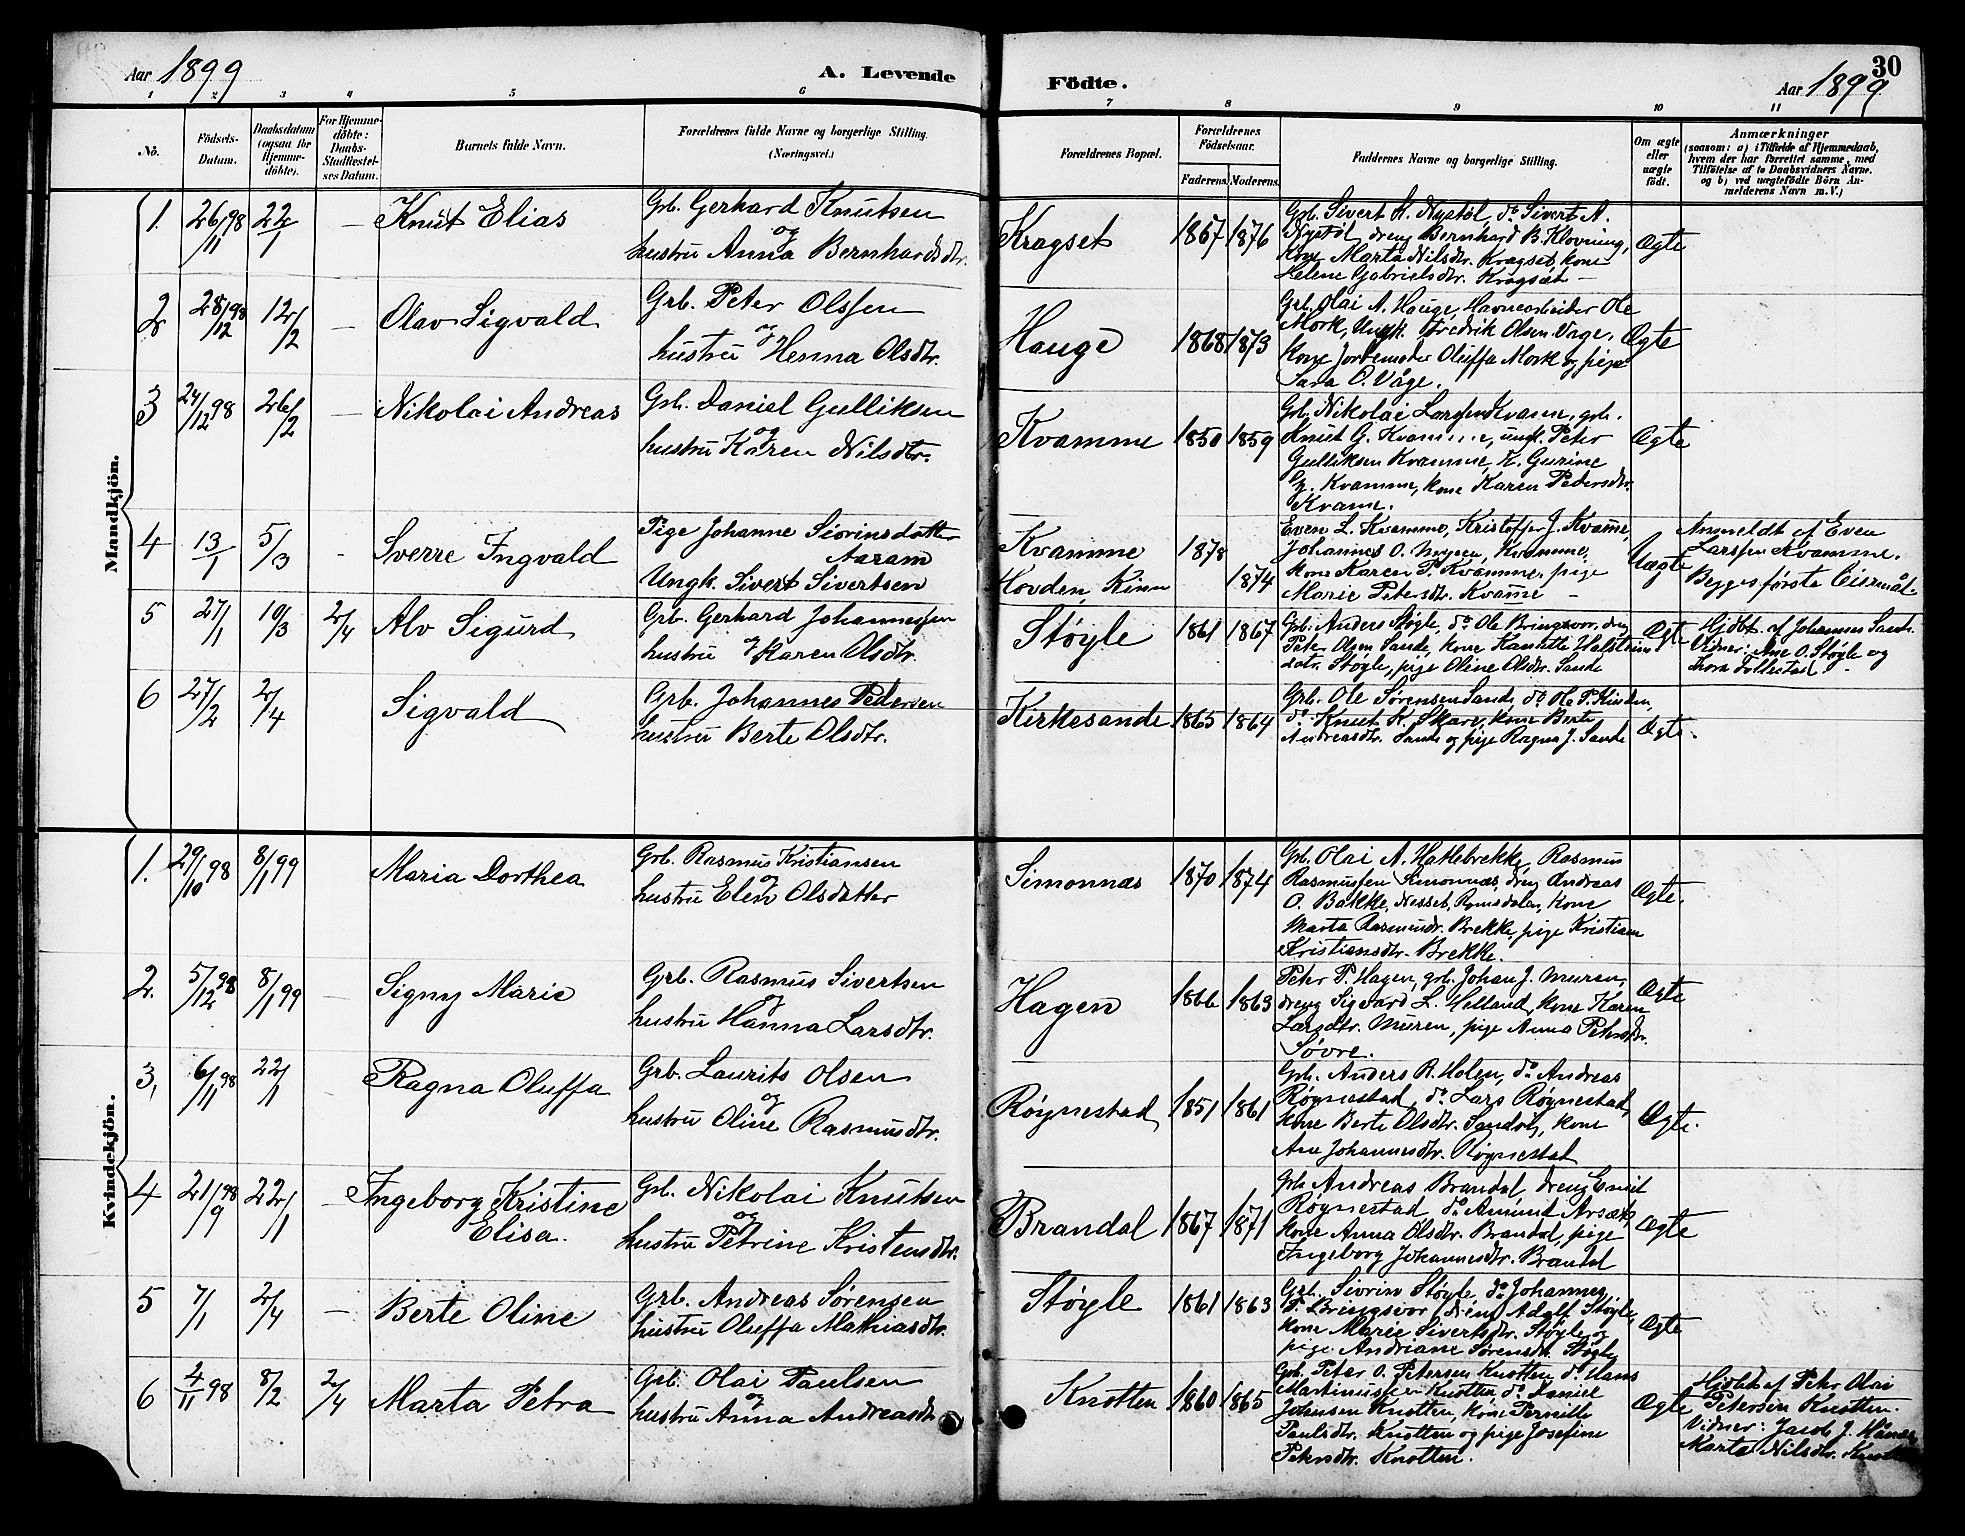 Aar 1899
A. Levende
Födte.
30
Aar 1899
1 2 3 4 5 6 7 8 9 10 11
No.
Födsels-
Datum.
Daabsdatum
(ogsaa for
Hjemme-
döbte).
For Hjemme-
döbte:
Daabs-
Stadfæstel-
ses Datum.
Barnets fulde Navn.
Forældrenes fulde Navne og borgerlige Stilling.
(Næringsvei.)
Forældrenes Bopæl.
Forældrenes
Födselsaar.
Faderens. Moderens.
Faddernes Navne og borgerlige Stilling.
Om ægte
eller
uægte
født.
Anmærkninger
(saasom: a) i Tilfælde af Hjemmedaab,
hvem der har forrettet samme, med
Tilföielse af to Daabsvidners Navne.
og b) ved uægtefödte Börn An-
melderens Navn m. V.)
Mandkjön.
1. 26/11 98 22/1 — Knut Elias
Grb. Gerhard Knutsen
og
hustru Anna Bernhardsdtr.
Kragset 1867 1876
Grb. Sivert K. Nystøl, do Sivert A.
Nystøl, dreng Bernhard B. Klovning,
kone Marta Nilsdtr. Kragset, kone
Helene Gabrielsdtr. Kragset —
Ægte
2 28/12 98 12/2 — Olav Sigvald
Grb. Peter Olssen
og
hustru Henna Olsdtr.
Hauge 1868 1873
Grb. Olai A. Hauge, Havnearbeider Ole
Mork, Ungk. Fredrik Olsen Vage,
kone Jordemoder Oluffa Mork og pige
Sara O. Våge.
Ægte
3 24/12 98 26/2 — Nikolai Andreas
Grb. Daniel Gulliksen
og
hustru Karen Nilsdtr.
Kvamme 1850 1859
Grb. Nikolai Larssen Kvamme, grb.
Knut G. Kvamme, ungk. Peter
Gulliksen Kvamme, K. Gurine
G. Kvamme, kone Karen Pedersdtr.
Kvame.
Ægte
4 13/1 5/3 - Sverre Ingvald
Pige Johanne Siverinsdotter
Aaram
Ungk. Sivert Sivertsen
Kvamme 1878
Hovden, Kinn 1874
Even L. Kvamme, Kristoffer J. Kvamme,
Johannes O. Kvamme,
kone Karen P. Kvamme, pige
Marie Petersdtr. Kvamme —
Uægte
Anmeldt af Even
Larssen Kvamme.
Begges første Leiermål.
5 27/1 10/3 2/4 Alv Sigurd
Grb. Gerhard Johannessen
hustru og Karen Olsdtr.
Støyle 1861 1867
Grb. Anders Støyle, do Ole Bringsvor, dreng
Peter Olsen Sande, kone Halstein
dotr. Støyle, pige Oline Olsdtr. Sande
Ægte
Hjdbt. af Johannes Sande.
Vidner: Ane O. Støyle og
Follestad.
6 27/2 2/4 Sigvald
Grb. Johannes Pedersen
hustru Berte Olsdtr.
Kirkesande 1865 1864
Grb. Ole Sørensen Sande, do Ole P.
do Knut K. Skare, kone Berte
Andreasdtr. Sande og pige Ragna J. Sande
Ægte.
Kvindekjön.
1. 29/10 98 8/1 99 Maria Dorthea
Grb. Rasmus Kristiansen
og
hustru Elen Olsdatter
Simonnæs 1870 1874
Grb. Olai A. Hattebrekke, Rasmus
Rasmussen Simonnæs, dreng Andreas
O. Bakke, Nesset, Romsdalen, kone
Marta Rasmusdr. Brekke, pige Kristiane
Kristiansdtr. Brekke.
Ægte.
2. 5/12 98 8/1 99 — Signy Marie
Grb. Rasmus Sivertsen
og
hustru Hanna Larsdtr.
Hagen 1866 1863
Peter P. Hagen, grb. Johan J. Muren,
dreng Sigvard L. Helland, kone Karen
Larsdtr. Muren, pige Anna Petersdtr.
Søvre.
Ægte
3, 6/11 98 22/1 Ragna Oluffa
Grb. Laurits Olsen
og
hustru Oline Rasmusdtr.
Røynestad 1851 1861
Grb. Anders R. Holen, do Andreas
Røynestad, do Lars Røynestad,
kone Berte Olsdtr. Sandvig, kone
Ane Johannesdtr. Røynestad
Ægte.
4 21/9 98 22/1 — Ingeborg Kristine
Elisa.
Grb. Nikolai Knutsen
og
hustru Petrine Kristensdtr.
Brandal 1867 1871
Grb. Andreas Brandal, dreng Emil
Røynestad do Amund Arsæt,
kone Anna Olsdtr. Brandal, pige
Ingeborg Johannesdtr. Brandal
Ægte
5 7/1 2/4 — Berte Oline
Grb. Andreas Sørensen
hustru Oluffa Mathiasdtr.
Støyle 1861 1863
Grb. Sivrin Støyle, do Johannes
P. Bringsvor, dreng Adolf Støyle,
kone Marie Sivertsdtr. Støyle og
pige Andriane Sørensdtr. Støyle
Ægte
6 4/11 98 8/2 2/4 Marta Petra
Grb. Olai Paulsen
og
hustru Anna Andreasdtr.
Knotten 1860 1865
Grb. Peter O. Petersen Knotten, do Hans
Martinussen Knotten, do Daniel
Johansen Knotten, kone Pernille
Paulsdtr. Knotten og pige Josefine
Petersdtr. Knotten.
Ægte
Hjdbt. af Peter Olai
Petersen Knotten.
Vidner: Jacob J.
Marta Nilsdtr. Knotten